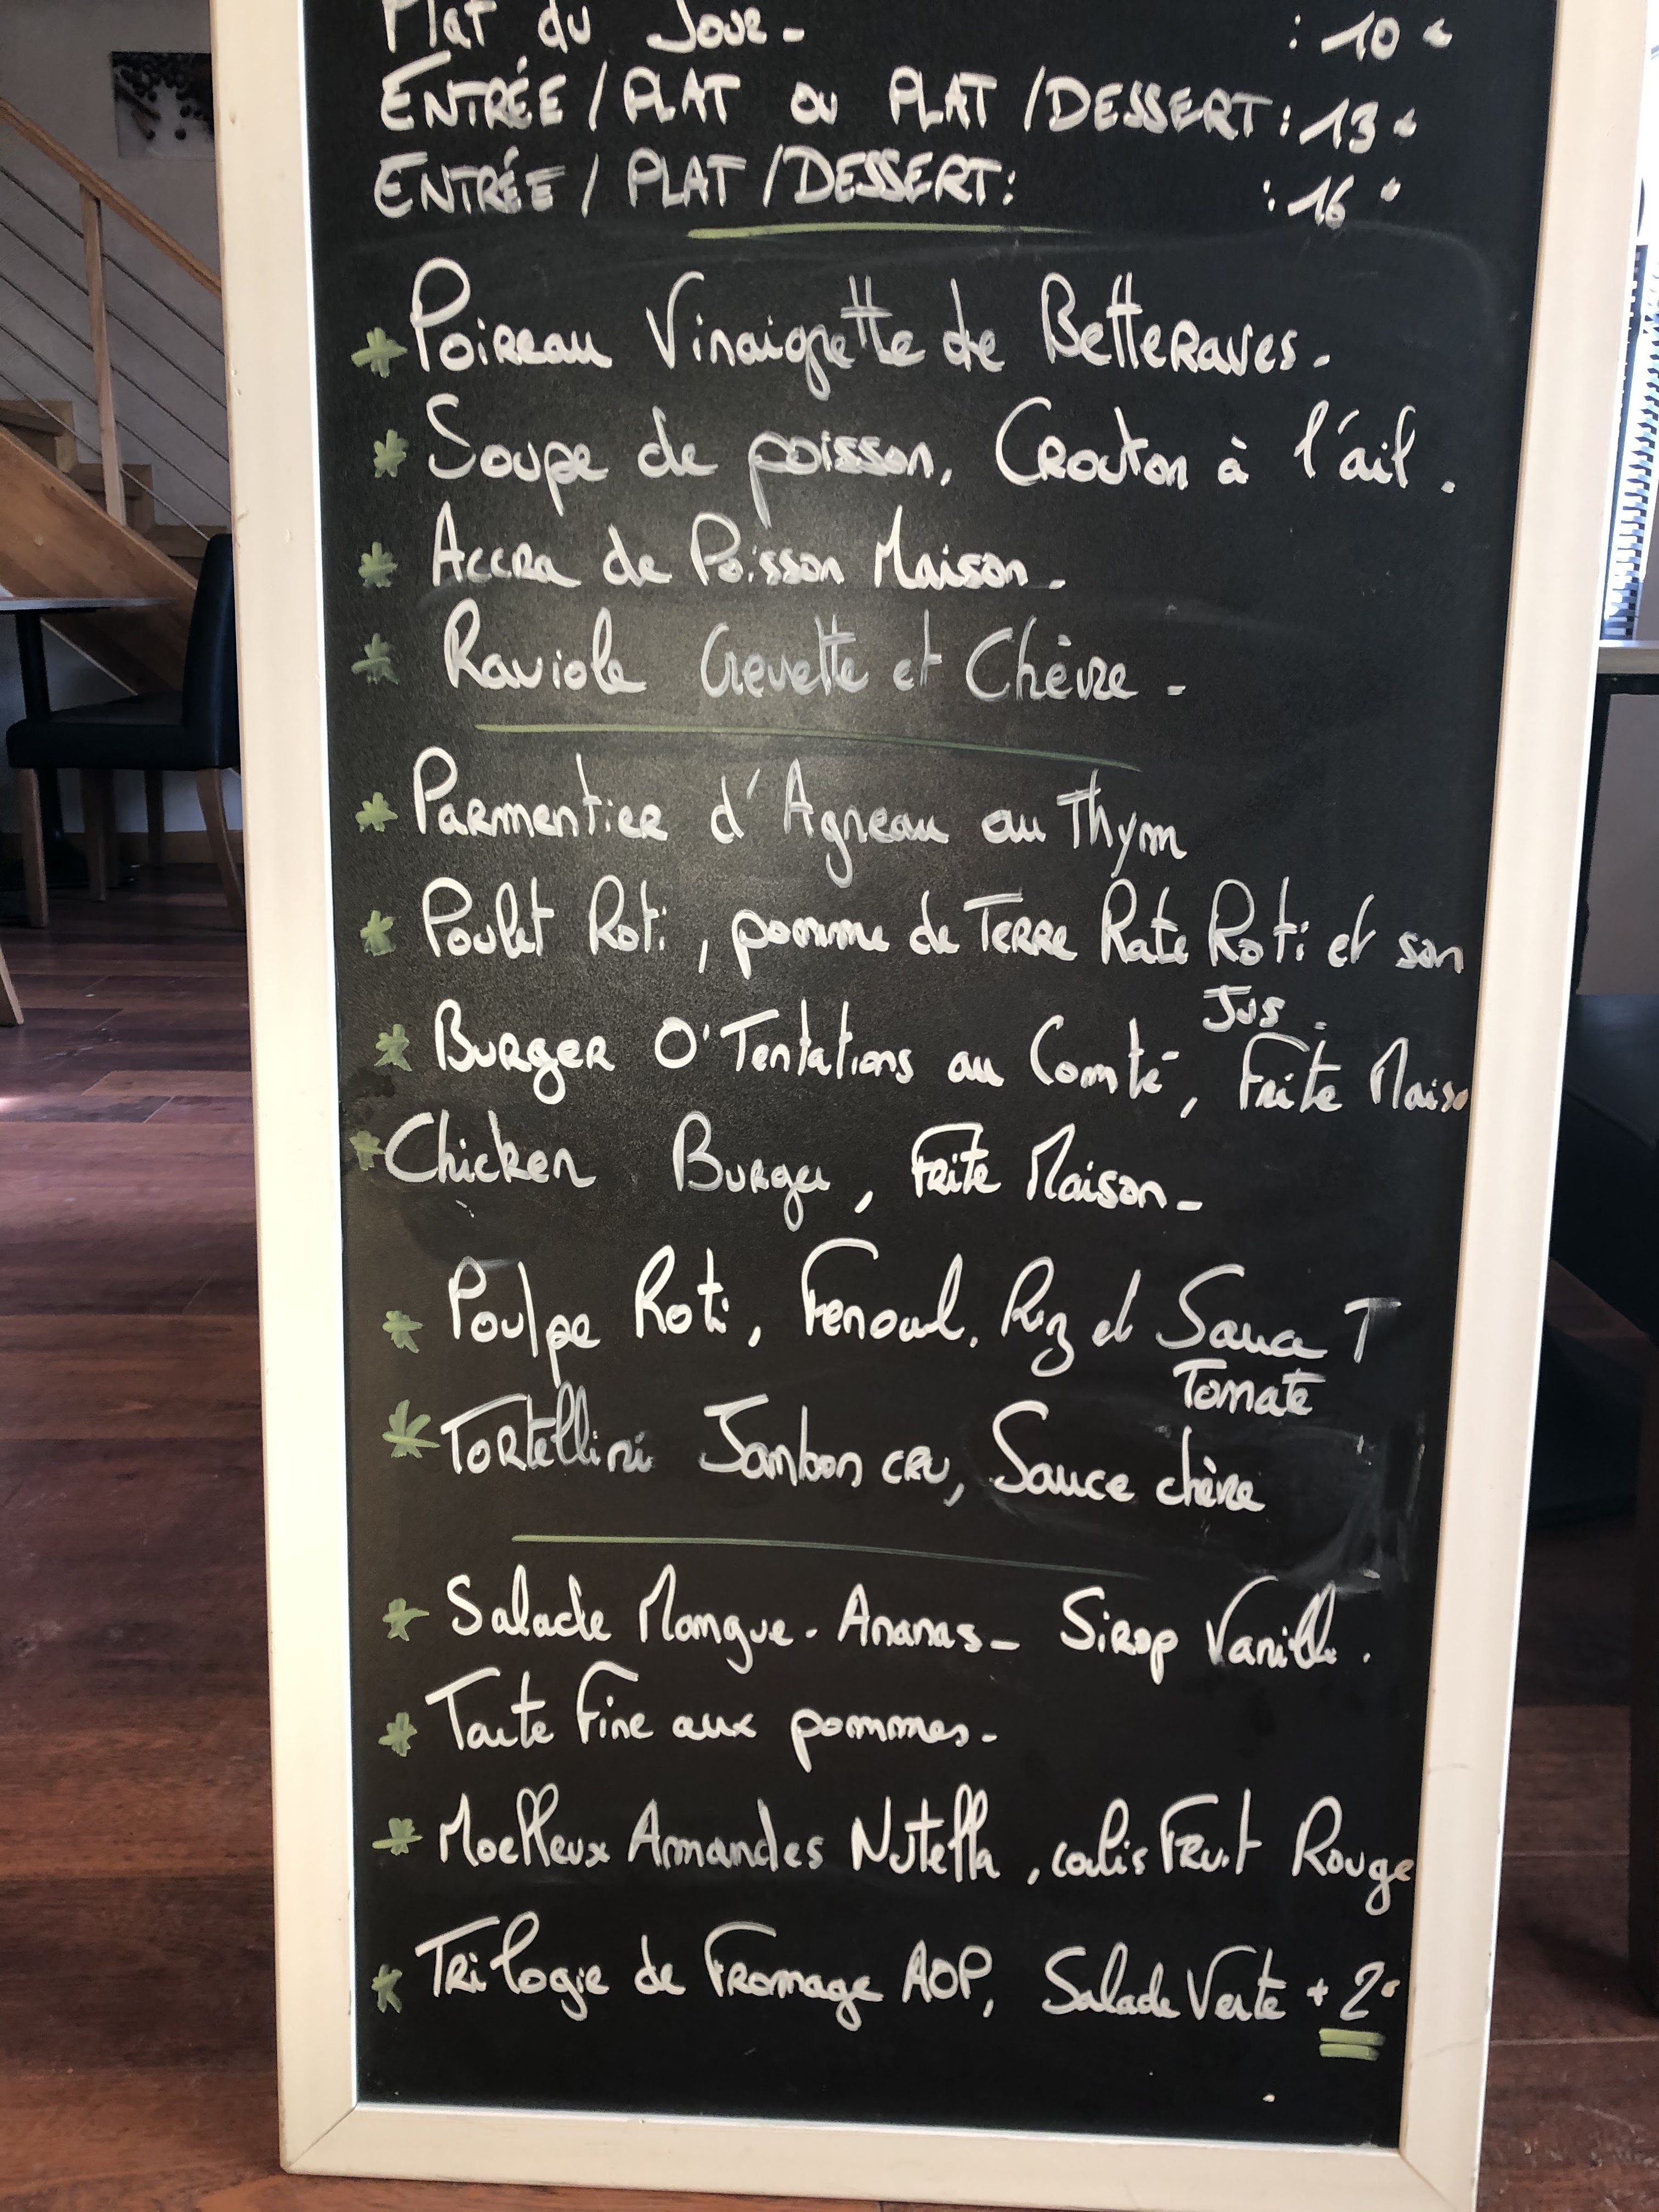 Plat du Jour - : 10 €
ENTRÉE / PLAT ou PLAT / DESSERT : 13 €
ENTRÉE / PLAT / DESSERT : : 16 €
* Poireau Vinaigrette de Betteraves.
* Soupe de poisson, Crouton à l'ail.
* Accra de Poisson Maison.
* Raviole Crevette et Chèvre -
* Parmentier d'Agneau au Thym
* Poulet Roti, pomme de Terre Rate Roti et son
Jus.
* Burger O'Tentations au Comté, Frite Maiso
* Chicken Burger, Frite Maison -
* Poulpe Roti, Fenouil, Riz et Sauce T
Tomate
* Tortellini Jambon cru, Sauce chèvre
* Salade Mangue - Ananas - Sirop Vanille.
* Tarte Fine aux pommes -
* Moelleux Amandes Nutella, coulis Fruit Rouge
* Trilogie de Fromage AOP, Salade Verte + 2€